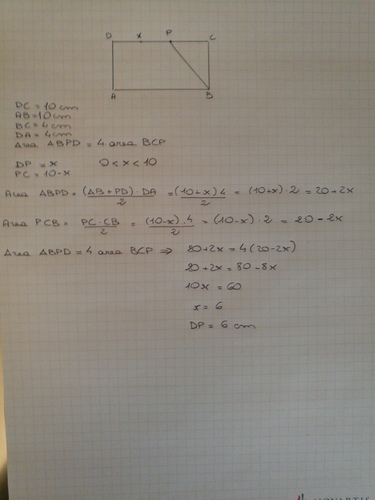 D x P C
A B
DC = 10 cm
AB = 10 cm
BC = 4 cm
DA = 4 cm
Area ABPD = 4 area BCP
DP = x 0 < x < 10
PC = 10 - x
Area ABPD = (AB + PD) · DA / 2 = (10+x) 4 / 2 = (10+x) · 2 = 20 + 2x
Area PCB = PC · CB / 2 = (10-x) · 4 / 2 = (10-x) · 2 = 20 - 2x
Area ABPD = 4 area BCP ⇒ 20 + 2x = 4(20 - 2x)
20 + 2x = 80 - 8x
10x = 60
x = 6
DP = 6 cm